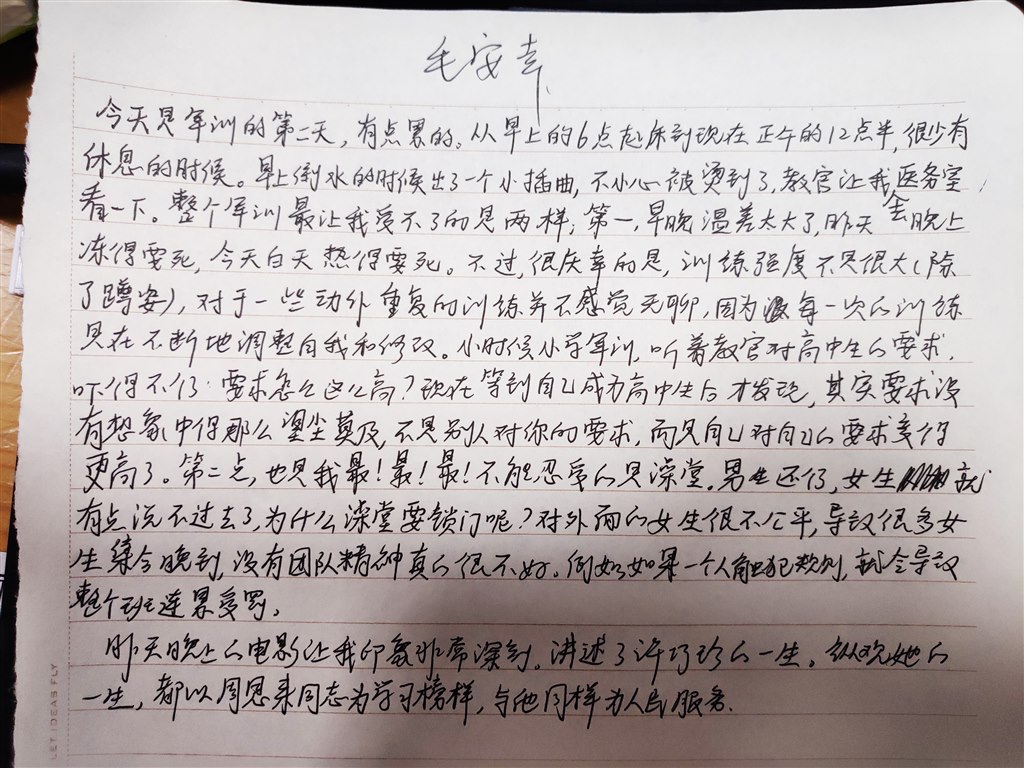 毛安幸
今天是军训的第二天，有点累的。从早上的6点起床到现在正午的12点半，很少有
休息的时候。早上倒水的时候出了一个小插曲，不小心被烫到了，教官让我去医务室
看一下。整个军训最让我受不了的是两样，第一，早晚温差太大了，昨天晚上
冻得要死，今天白天热得要死。不过，很庆幸的是，训练强度不是很大（除
了蹲姿），对于一些动作重复的训练并不感觉无聊，因为每一次的训练
是在不断地调整自我和修改。小时候小学军训，听着教官对高中生的要求，
吓得不行：要求怎么这么高？现在等到自己成为高中生后才发现，其实要求没
有想象中得那么望尘莫及，不是别人对你的要求，而是自己对自己的要求变得
更高了。第二点，也是我最！最！最！不能忍受的是澡堂，男生还行，女生就
有点说不过去了，为什么澡堂要锁门呢？对外面的女生很不公平，导致很多女
生集合晚到，没有团队精神真的很不好。例如如果一个人触犯规则，就会导致
整个班连累受罚。
昨天晚上的电影让我印象非常深刻。讲述了许巧珍的一生。纵观她的
一生，都以周恩来同志为学习榜样，与他同样为人民服务。
LET IDEAS FLY